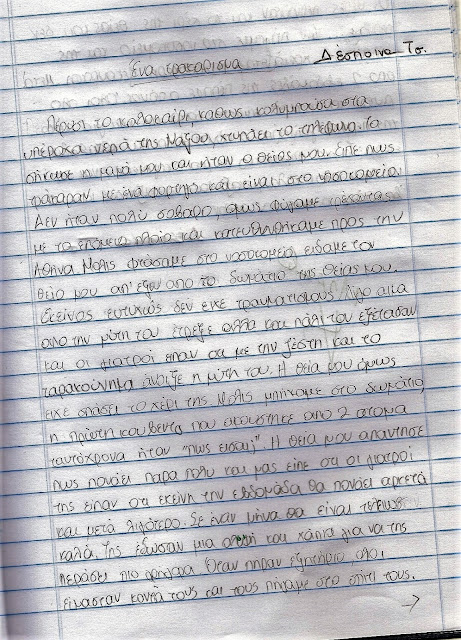 Ένα τρακάρισμα
Δέσποινα Τσ.
Πέρυσι το καλοκαίρι καθώς κολυμπούσα στα
υπέροχα νερά της Νάξου χτυπάει το τηλέφωνο. Το
σήκωσε η μαμά μου και ήταν ο θείος μου. Είπε πως
τράκαραν με ένα φορτηγό και είναι στο νοσοκομείο.
Δεν ήταν πολύ σοβαρό, όμως φύγαμε τρέχοντας
με το επόμενο πλοίο και κατευθυνθήκαμε προς την
Αθήνα. Μόλις φτάσαμε στο νοσοκομείο είδαμε τον
θείο μου απ' έξω από το δωμάτιο της θείας μου.
Εκείνος ευτυχώς δεν είχε τραυματισμούς. Λίγο αίμα
από την μύτη του έτρεξε αλλά και πάλι τον εξέτασαν
και οι γιατροί είπαν ότι με την ζέστη και το
ταρακούνημα άνοιξε η μύτη του. Η θεία μου όμως
είχε σπάσει το χέρι της. Μόλις μπήκαμε στο δωμάτιο,
η πρώτη κουβέντα που ακούστηκε από 2 άτομα
ταυτόχρονα ήταν "πως είσαι;" Η θεία μου απάντησε
πως πονάει πάρα πολύ και μας είπε ότι οι γιατροί
της είπαν ότι εκείνη την εβδομάδα θα πονάει αρκετά
και μετά λιγότερο. Σε έναν μήνα θα είναι τελείως
καλά. Της έδωσαν μια και χάπια για να της
περάσει πιο γρήγορα. Όταν πήραν εξητήριο όλοι
είμασταν κοντά τους και τους πήγαμε στο σπίτι τους.
→